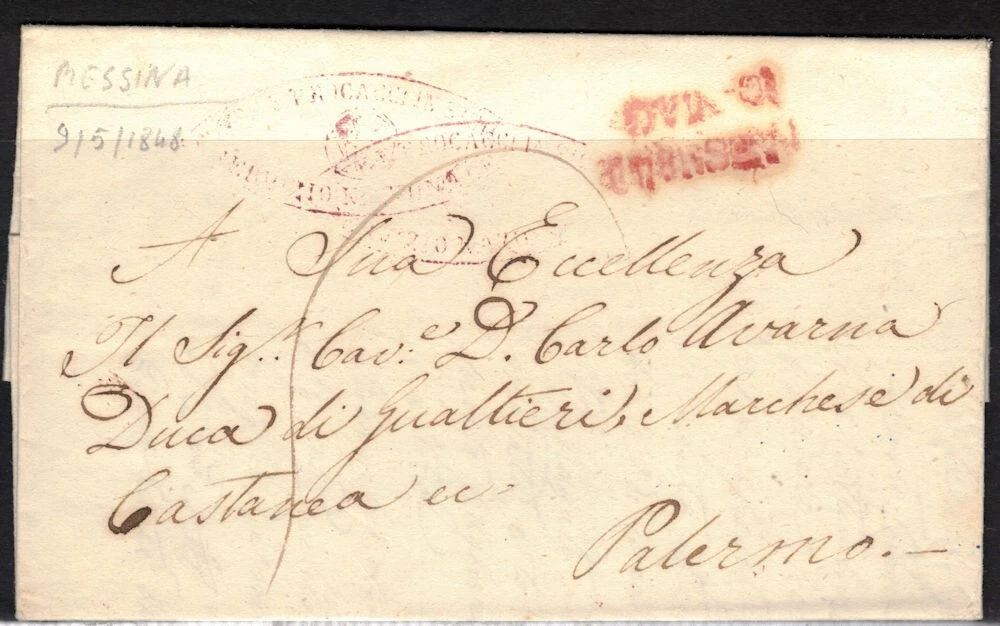 MESSINA
9/5/1848
PROCACCIA
PROCACCIA
A Sua Eccellenza
Il Sig.r Cav.e D. Carlo Avarna
Duca di Gualtieri, Marchese di
Castanea ec
Palermo. —